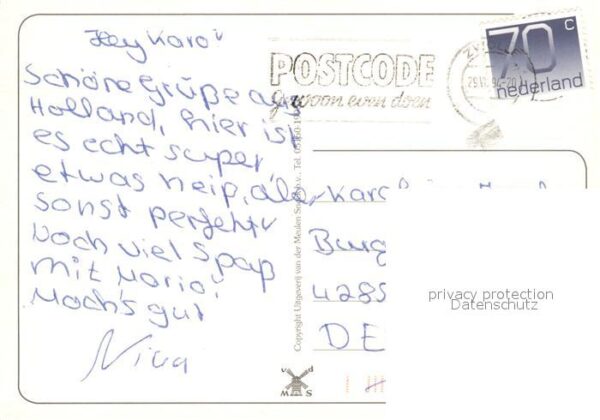 Hey Karo!
Schöne Grüße aus
Holland, hier ist
es echt super
etwas neip, aber
sonst perfekt!
Noch viel Spaß
mit Mario!
Mach's gut
Nina
POSTCODE
gewoon even doen
70 c
nederland
Copyright Uitgeverij van der Meulen
Karo
Burg
4285
DE
v d
M S
privacy protection
Datenschutz